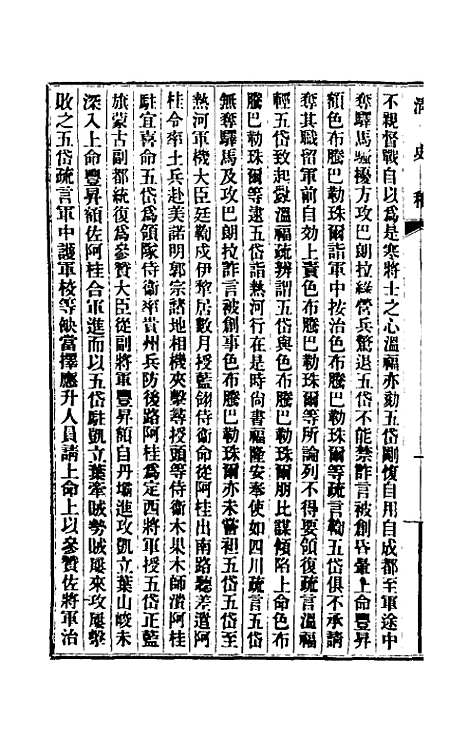 清史稿
不親督戰自以爲是寒將士之心溫福亦劾五岱剛愎自用自成都至軍途中
奪驛馬騷擾方攻巴朗拉綠營兵驚退五岱不能禁詐言被創昏暈上命豐昇
額色布騰巴勒珠爾詣軍中按治色布騰巴勒珠爾等疏言鞫五岱俱不承請
奪其職留軍前自効上責色布騰巴勒珠爾等所論列不得要領復疏言溫福
輕五岱致起釁溫福疏辨謂五岱與色布騰巴勒珠爾朋比謀傾陷上命色布
騰巴勒珠爾等逮五岱詣熱河行在是時尚書福隆安奉使如四川疏言五岱
無奪驛馬及攻巴朗拉詐言被創事色布騰巴勒珠爾亦未嘗袒五岱五岱至
熱河軍機大臣廷鞫戍伊犂居數月授藍翎侍衞命從阿桂出南路聽差遣阿
桂令率土兵赴美諾明郭宗諸地相機夾擊尋授頭等侍衞木果木師潰阿桂
駐宜喜命五岱爲領隊侍衞率貴州兵防後路阿桂爲定西將軍授五岱正藍
旗蒙古副都統復爲參贊大臣從副將軍豐昇額自丹壩進攻凱立葉山峻未
深入上命豐昇額佐阿桂合軍進而以五岱駐凱立葉牽賊勢賊屢來攻屢擊
敗之五岱疏言軍中護軍校等缺當擇應升人員請上命上以參贊佐將軍治